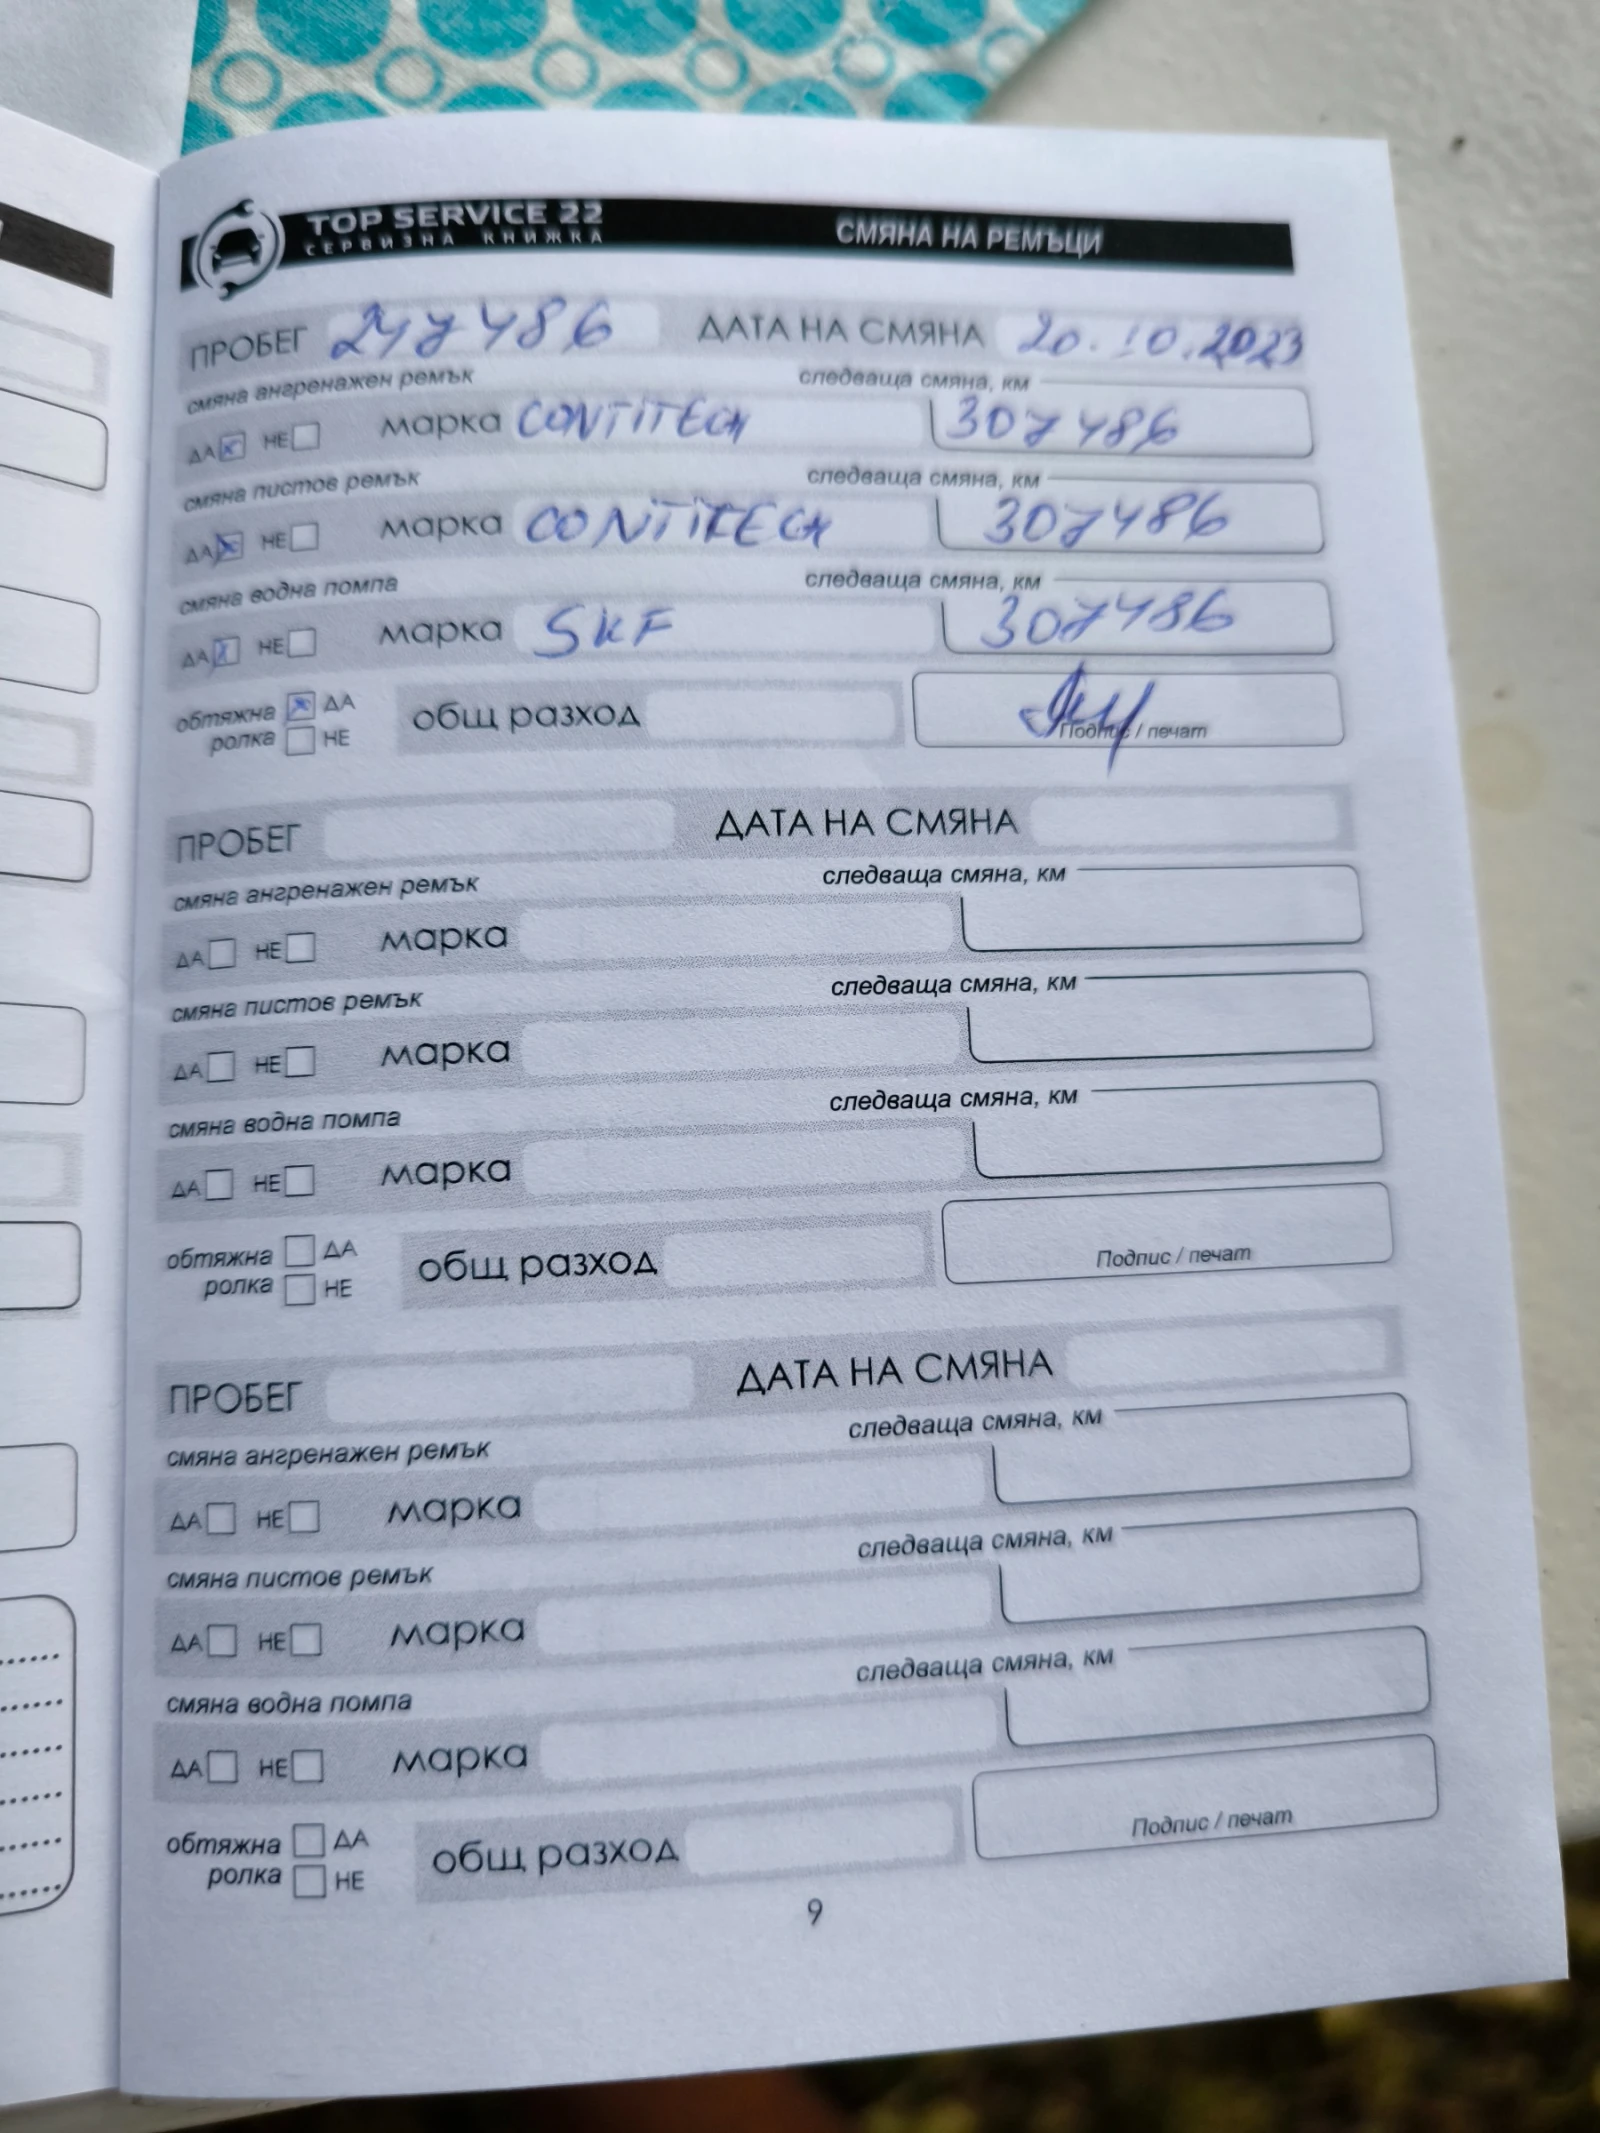 TOP SERVICE 22 СМЯНА НА РЕМЪЦИ
СЕРВИЗНА КНИЖКА
ПРОБЕГ 247486 ДАТА НА СМЯНА 20.10.2023
смяна ангренажен ремък следваща смяна, км
ДА x НЕ марка CONTITECH 307486
смяна пистов ремък следваща смяна, км
ДА x НЕ марка CONTITECH 307486
смяна водна помпа следваща смяна, км
ДА x НЕ марка SKF 307486
обтяжна x ДА общ разход
ролка НЕ Подпис / печат
ПРОБЕГ ДАТА НА СМЯНА
смяна ангренажен ремък следваща смяна, км
ДА НЕ марка
смяна пистов ремък следваща смяна, км
ДА НЕ марка
смяна водна помпа следваща смяна, км
ДА НЕ марка
обтяжна ДА общ разход
ролка НЕ Подпис / печат
ПРОБЕГ ДАТА НА СМЯНА
смяна ангренажен ремък следваща смяна, км
ДА НЕ марка
смяна пистов ремък следваща смяна, км
ДА НЕ марка
смяна водна помпа следваща смяна, км
ДА НЕ марка
обтяжна ДА общ разход
ролка НЕ Подпис / печат
9